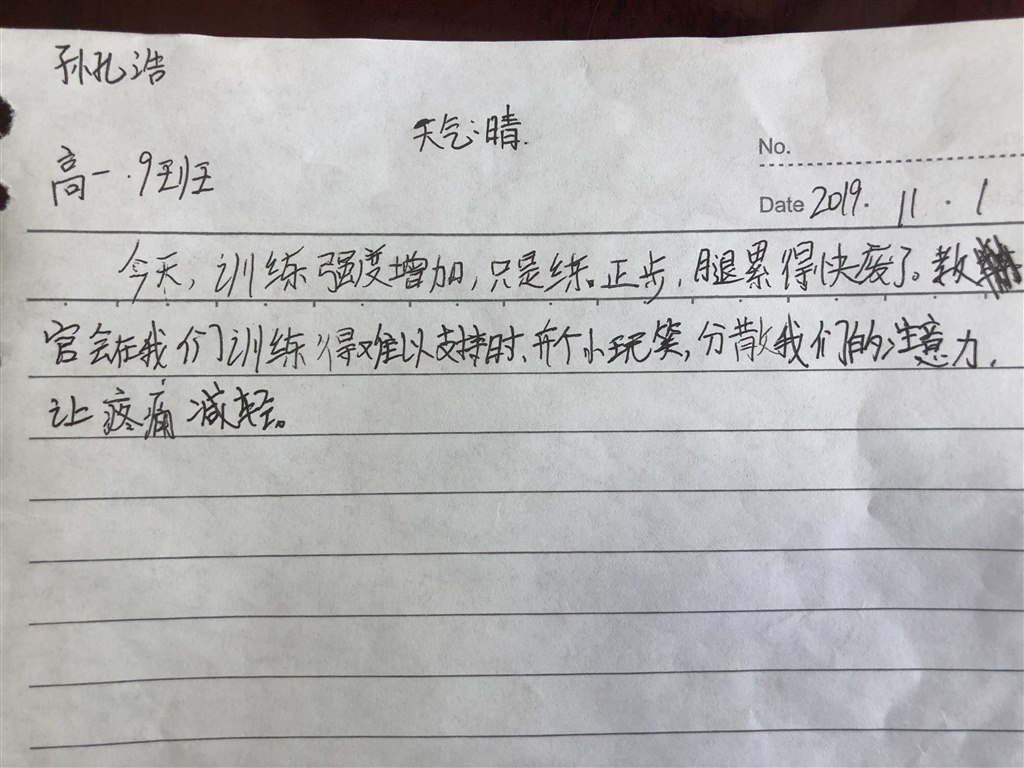 孙孔浩
天气:晴.
No.
高一.9班
Date 2019. 11 . 1
今天,训练强度增加,只是练正步,腿累得快废了。教
官会在我们训练得难以支持时、开个小玩笑,分散我们的注意力,
让疼痛减轻。